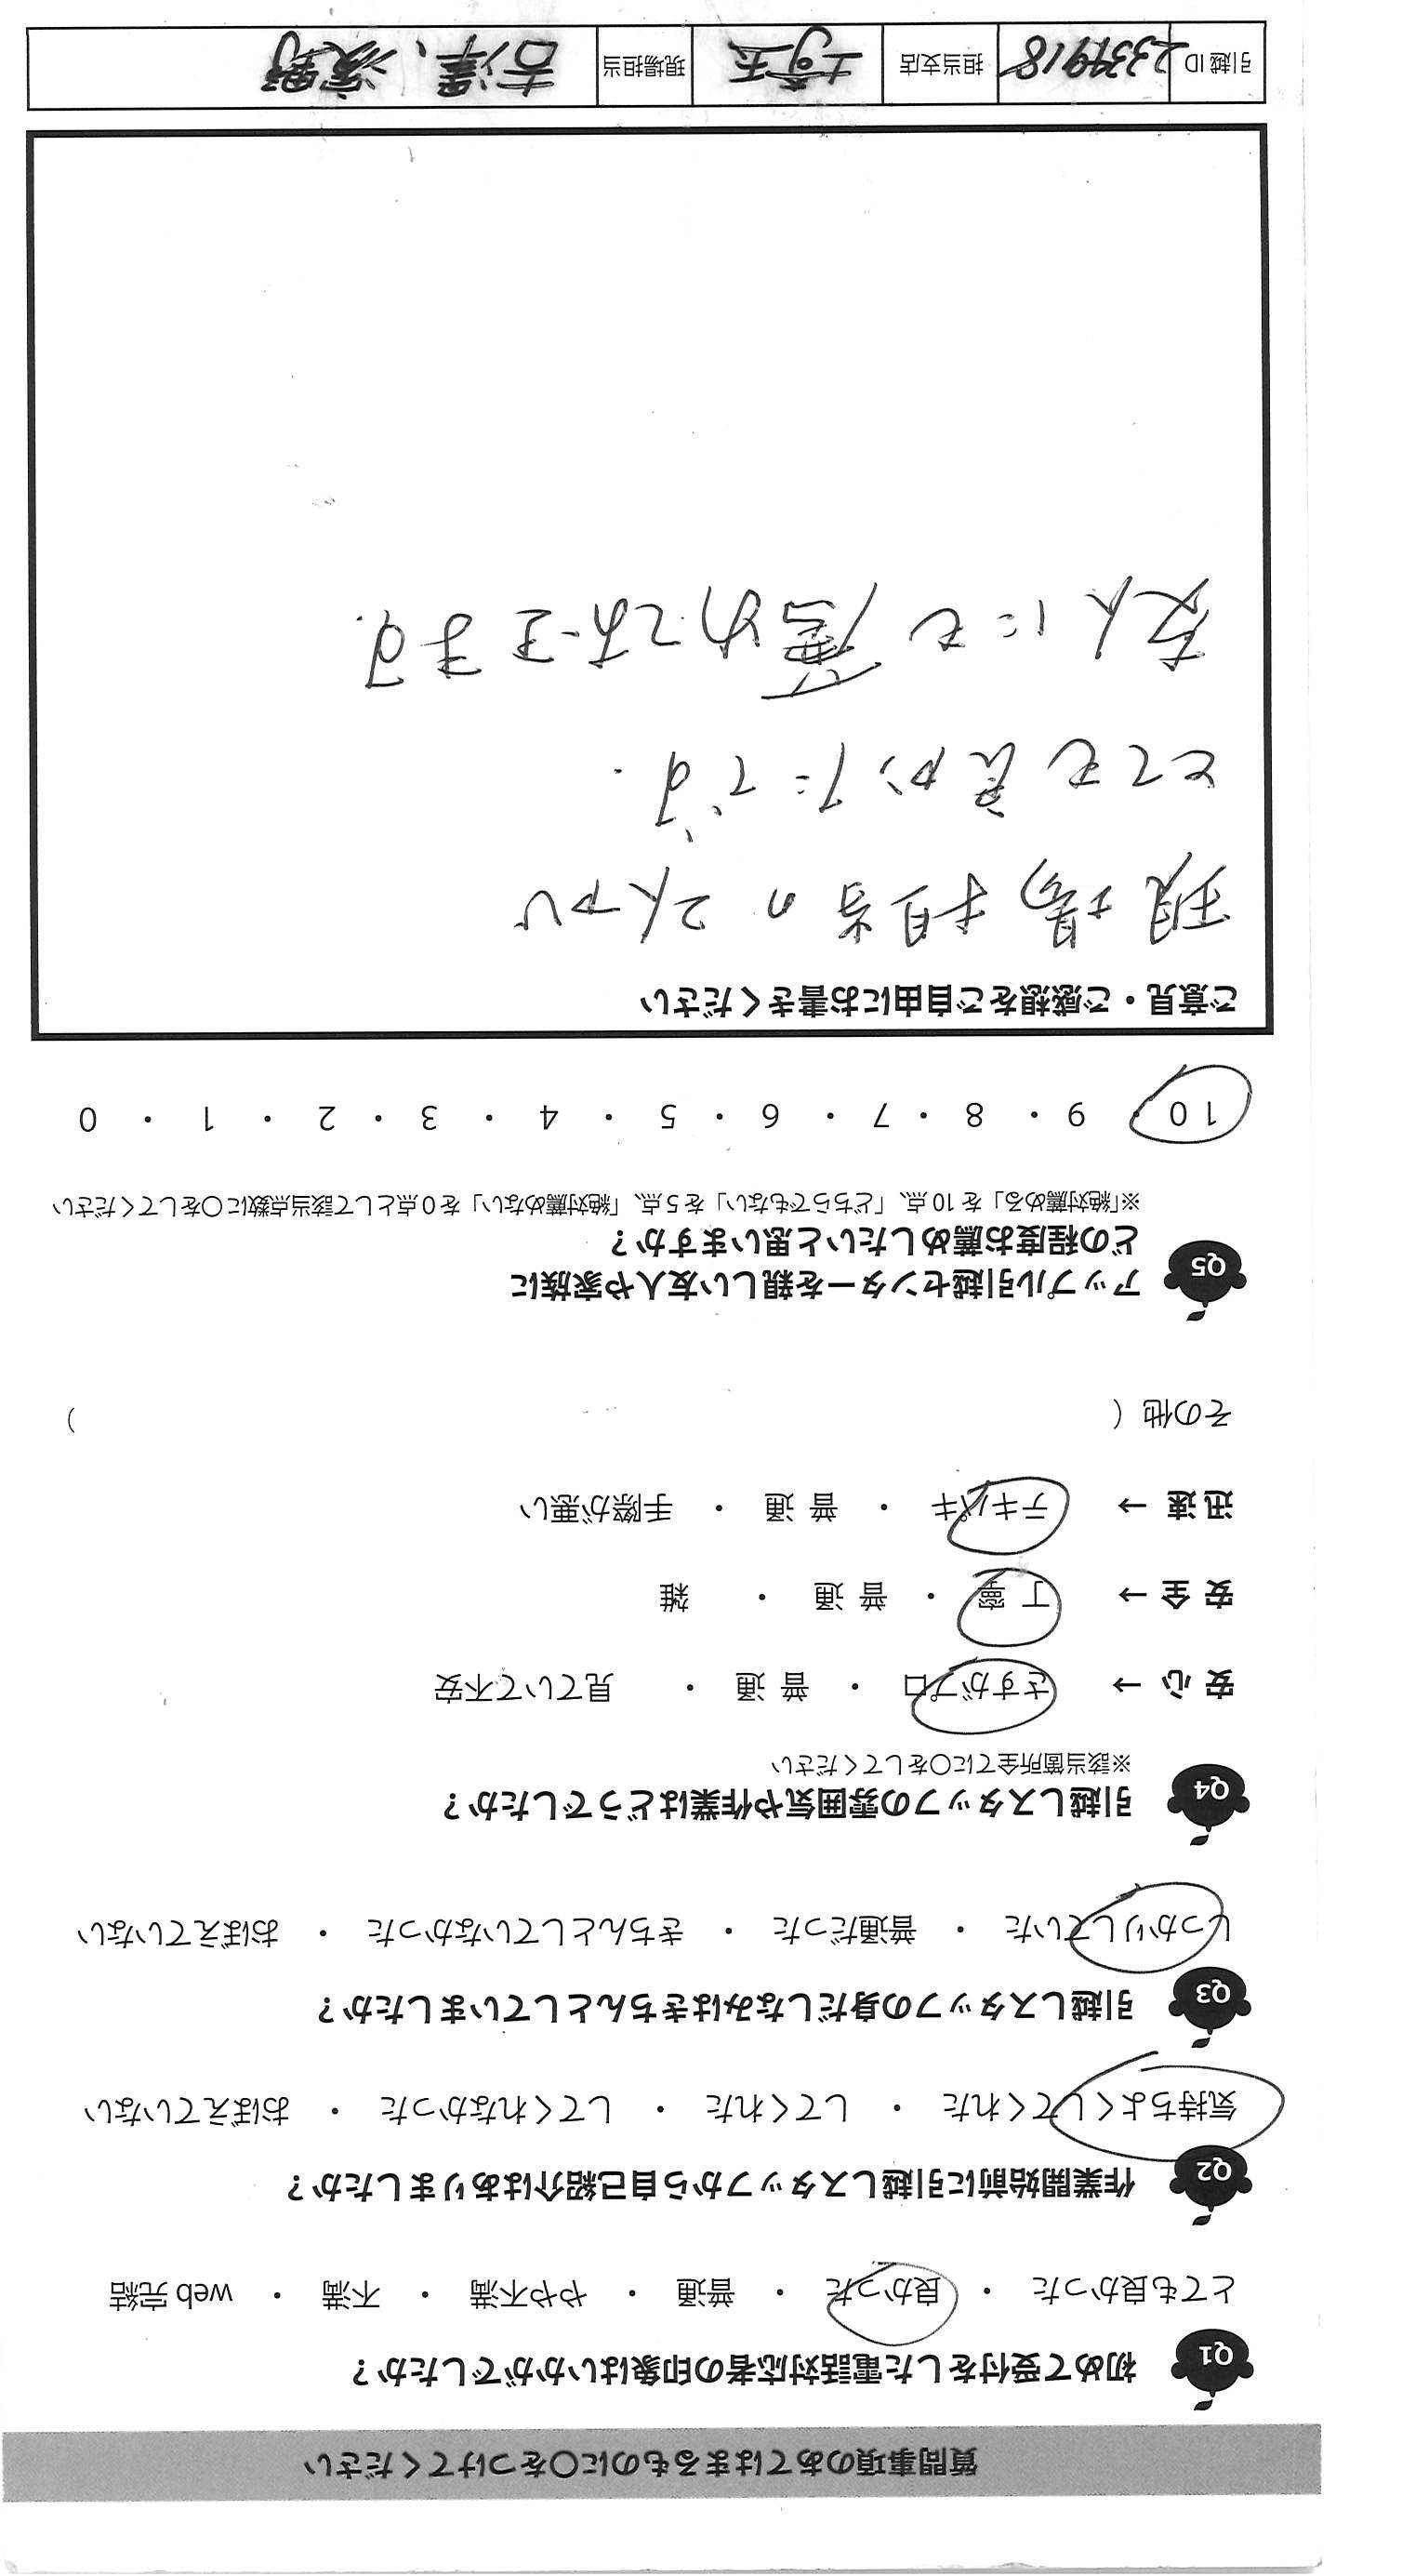 質問事項のあてはまるものに〇をつけてください
Q1 初めて受付をした電話対応者の印象はいかがでしたか？
とても良かった ・ 良かった ・ 普通 ・ やや不満 ・ 不満 ・ web 完結
Q2 作業開始前に引越しスタッフから自己紹介はありましたか？
気持ちよくしてくれた ・ してくれた ・ してくれなかった ・ おぼえていない
Q3 引越しスタッフの身だしなみはきちんとしていましたか？
しっかりしていた ・ 普通だった ・ きちんとしていなかった ・ おぼえていない
Q4 引越しスタッフの雰囲気や作業はどうでしたか？
※該当箇所全てに〇をしてください
安 心 → さすがプロ ・ 普 通 ・ 見ていて不安
安 全 → 丁 寧 ・ 普 通 ・ 雑
迅 速 → テキパキ ・ 普 通 ・ 手際が悪い
その他（ ）
Q5 アップル引越センターを親しい友人や家族に
どの程度お薦めしたいと思いますか？
※「絶対薦める」を 10 点、「どちらでもない」を 5 点、「絶対薦めない」を 0 点として該当点数に〇をしてください
10 ・ 9 ・ 8 ・ 7 ・ 6 ・ 5 ・ 4 ・ 3 ・ 2 ・ 1 ・ 0
ご意見・ご感想をご自由にお書きください
現場担当の2人が
とても良かたです.
友人にも薦めておきます.
引越 ID 2339918 担当支店 埼玉 現場担当 吉澤、濱野